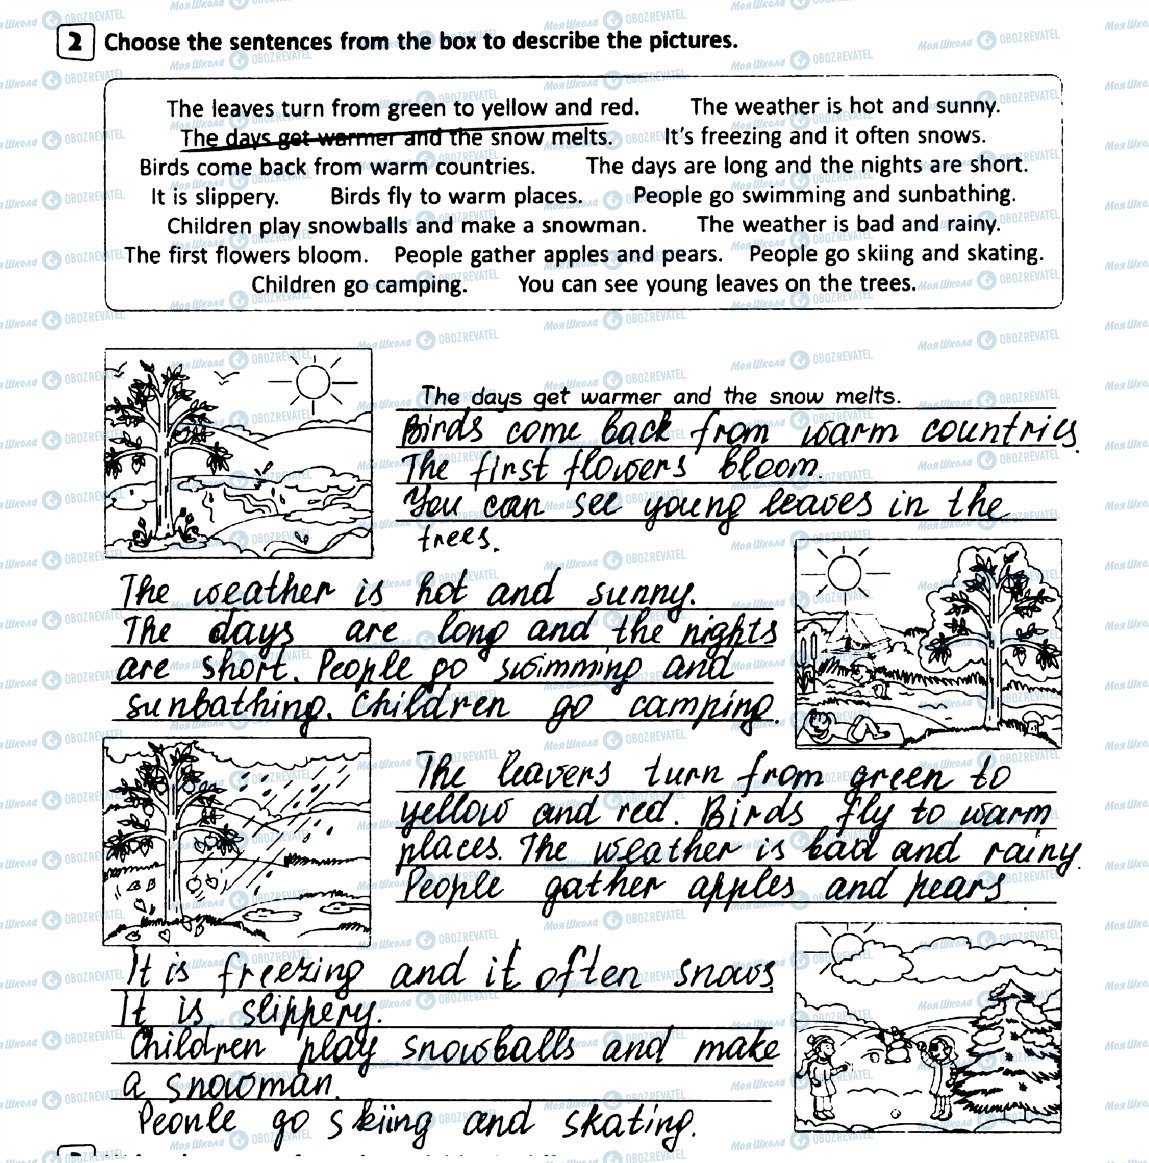 2 Choose the sentences from the box to describe the pictures.
The leaves turn from green to yellow and red. The weather is hot and sunny.
The days get warmer and the snow melts. It's freezing and it often snows.
Birds come back from warm countries. The days are long and the nights are short.
It is slippery. Birds fly to warm places. People go swimming and sunbathing.
Children play snowballs and make a snowman. The weather is bad and rainy.
The first flowers bloom. People gather apples and pears. People go skiing and skating.
Children go camping. You can see young leaves on the trees.
The days get warmer and the snow melts.
Birds come back from warm countries.
The first flowers bloom.
You can see young leaves in the
trees.
The weather is hot and sunny.
The days are long and the nights
are short. People go swimming and
sunbathing. Children go camping.
The leavers turn from green to
yellow and red. Birds fly to warm
places. The weather is bad and rainy.
People gather apples and pears.
It is freezing and it often snows
It is slippery.
Children play snowballs and make
a snowman.
People go skiing and skating.
МояШкола OBOZREVATEL